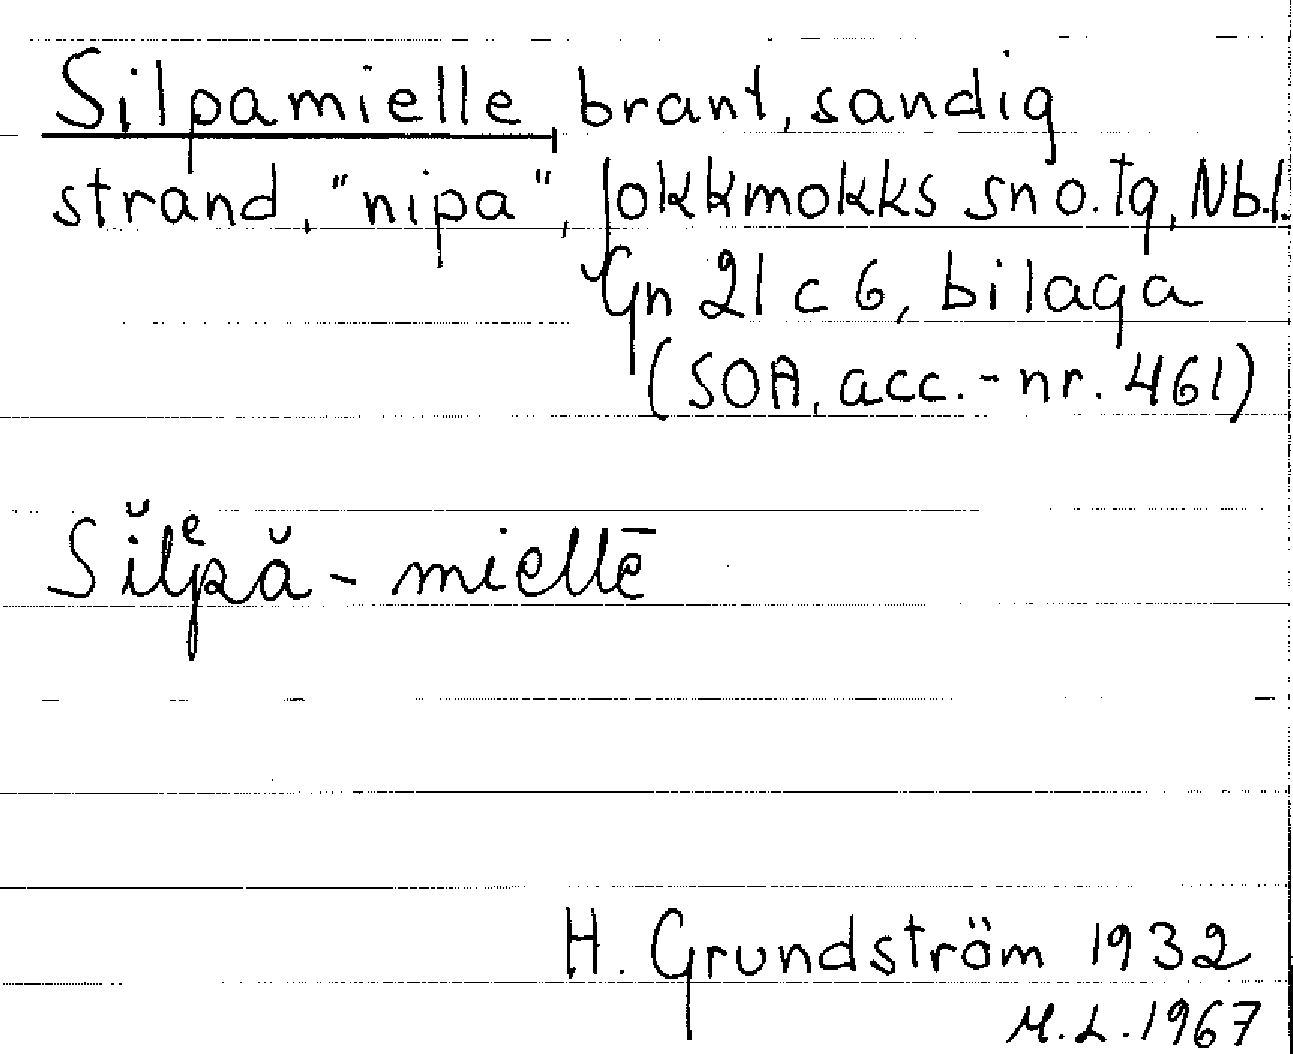 Silpamielle brant, sandig
strand, "nipa", Jokkmokks sn o. tg, Nb.l.
Gn 21 c 6, bilaga
(SOA, acc.-nr. 461)
Sĭlᵉpă-miellē
H. Grundström 1932
M.L. 1967